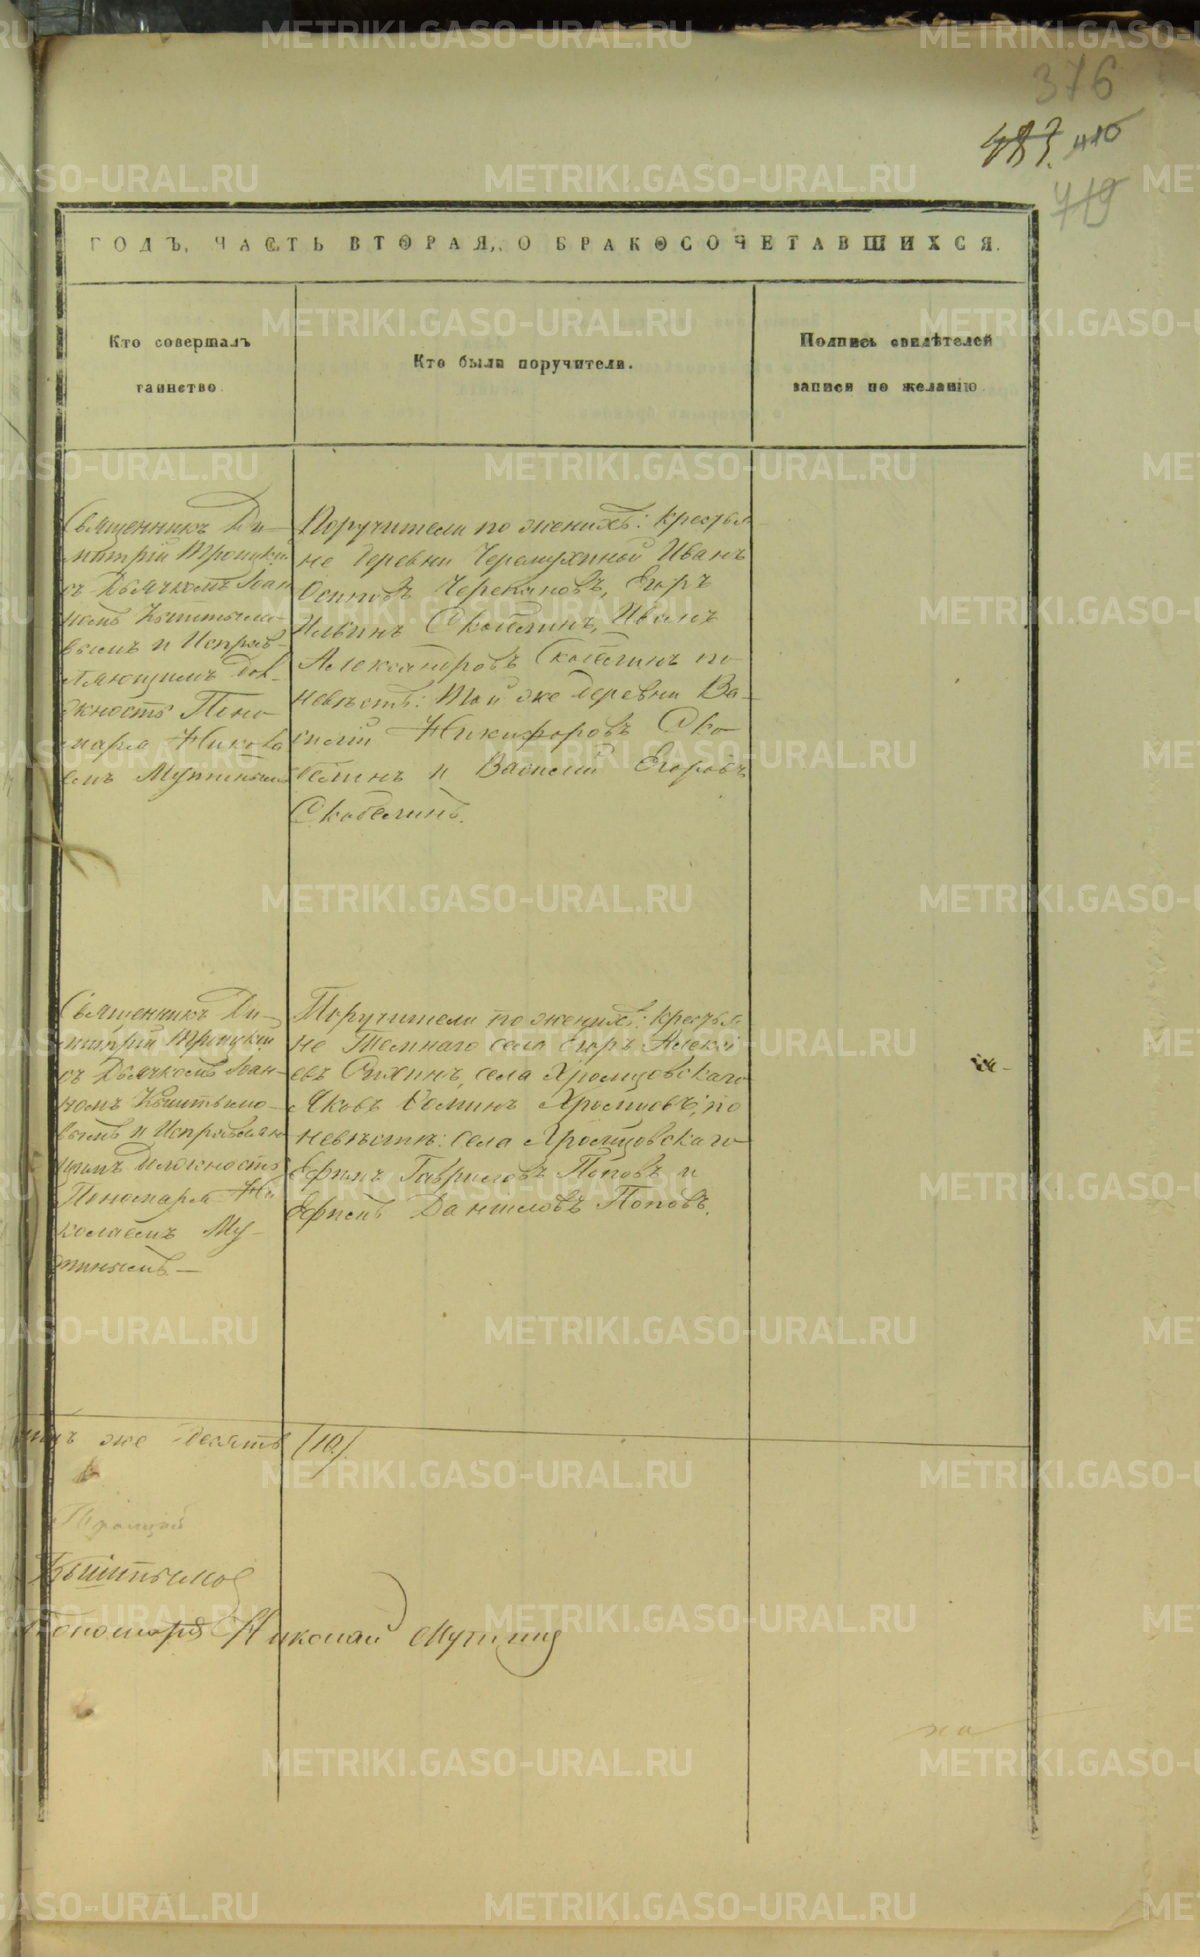 376
483. 410
719
ГОДЪ, ЧАСТЬ ВТОРАЯ, О БРАКОСОЧЕТАВШИХСЯ.
Кто совершалъ
таинство.
Кто были поручители.
Подпись свидѣтелей
записи по желанію.
Священникъ Ди-
митрій Троицкій
съ Дьячкомъ Іоан
номъ Кыштымо-
вымъ и Исправ-
ляющимъ дол-
жность Поно-
маря Никола
емъ Мутинымъ
Поручители по женихѣ: крестья
не деревни Черемухиной Иванъ
Осиповъ Черепановъ, Егоръ
Ильинъ Скобелинъ, Иванъ
Александровъ Скобелинъ по
невѣстѣ: той же деревни Ва-
силій Никифоровъ Ско-
белинъ и Василій Егоровъ
Скобелинъ.
Священникъ Ди-
митрій Троицкій
съ Дьячкомъ Іоан-
номъ Кыштымо-
вымъ и Исправляю
щимъ должность
Пономаря Ни
колаемъ Му-
тинымъ —
Поручители по женихѣ: крестья-
не Темнаго села Егоръ Алексѣ
евъ села Хромцовскаго
Яковъ Хромцовъ; по
невѣстѣ: села Хромцовскаго
Ефимъ Гавриловъ Поповъ и
Ефимъ Даниловъ Поповъ.
же десять (10)
Троицкій
Кыштымов
Пономарь Николай Мутинъ
METRIKI.GASO-URAL.RU